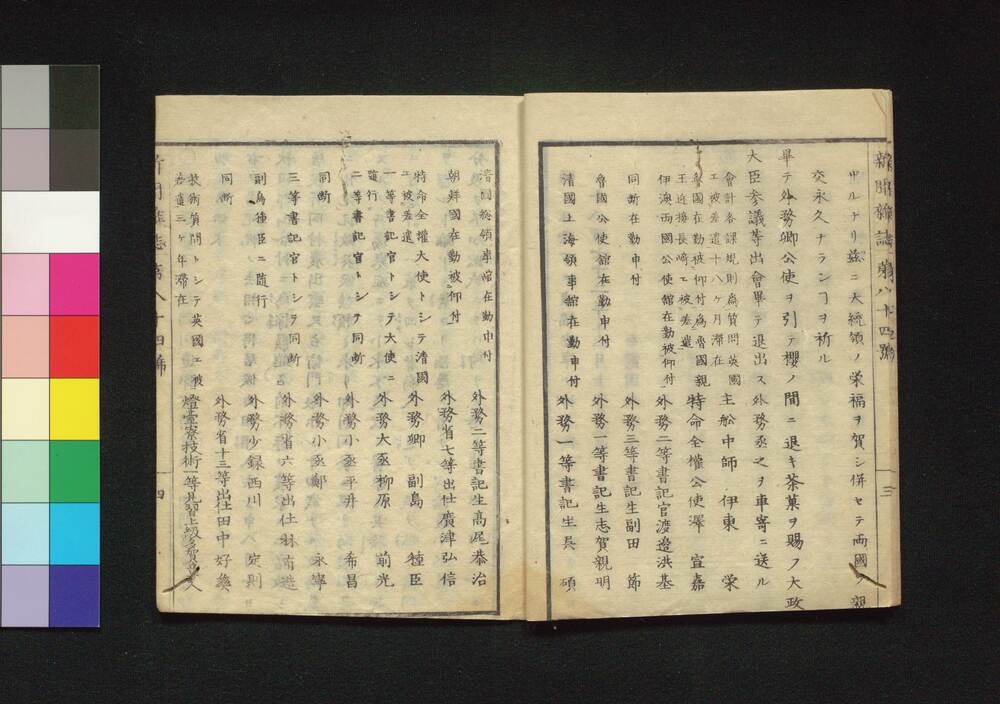 新聞雑誌第八十四號
三
申ルナリ茲ニ大統領ノ榮福ヲ賀シ併セテ両國ノ親
交永久ナランヿヲ祈ル
畢テ外務卿公使ヲ引テ櫻ノ間ニ退キ茶菓ヲ賜フ大政
大臣参議等出會畢テ退出ス外務丞之ヲ車寄ニ送ル
會計各課規則為質問英國
エ被差遣十八ヶ月滞在
主舩中師 伊東 榮
魯國在勤被仰付為魯國親
王迎接長崎エ被差遣
特命全權公使澤 宣嘉
伊澳両國公使館在勤被仰付 外務二等書記官渡邉洪基
同断在勤申付 外務三等書記生副田 節
魯國公使館在勤申付 外務一等書記生志賀親明
清國上海領事館在勤申付 外務一等書記生呉 碩
清國総領事館在勤申付 外務二等書記生高尾恭治
朝鮮國在勤被仰付 外務省七等出仕廣津弘信
特命全權大使トシテ清國
エ被差遣
外務卿 副島 種臣
一等書記官トシテ大使ニ
随行
外務大丞柳原 前光
二等書記官トシテ同断 外務小丞平井 希昌
同断 外務小丞鄭 永寧
三等書記官トシテ同断 外務省六等出仕林 有造
副島種臣ニ随行 外務少録西川 定則
同断 外務省十三等出仕田中 好
技術質問トシテ英國エ被
差遣三ヶ年滞在
燈臺寮技術一等見習上
新聞雑誌第八十四號
四